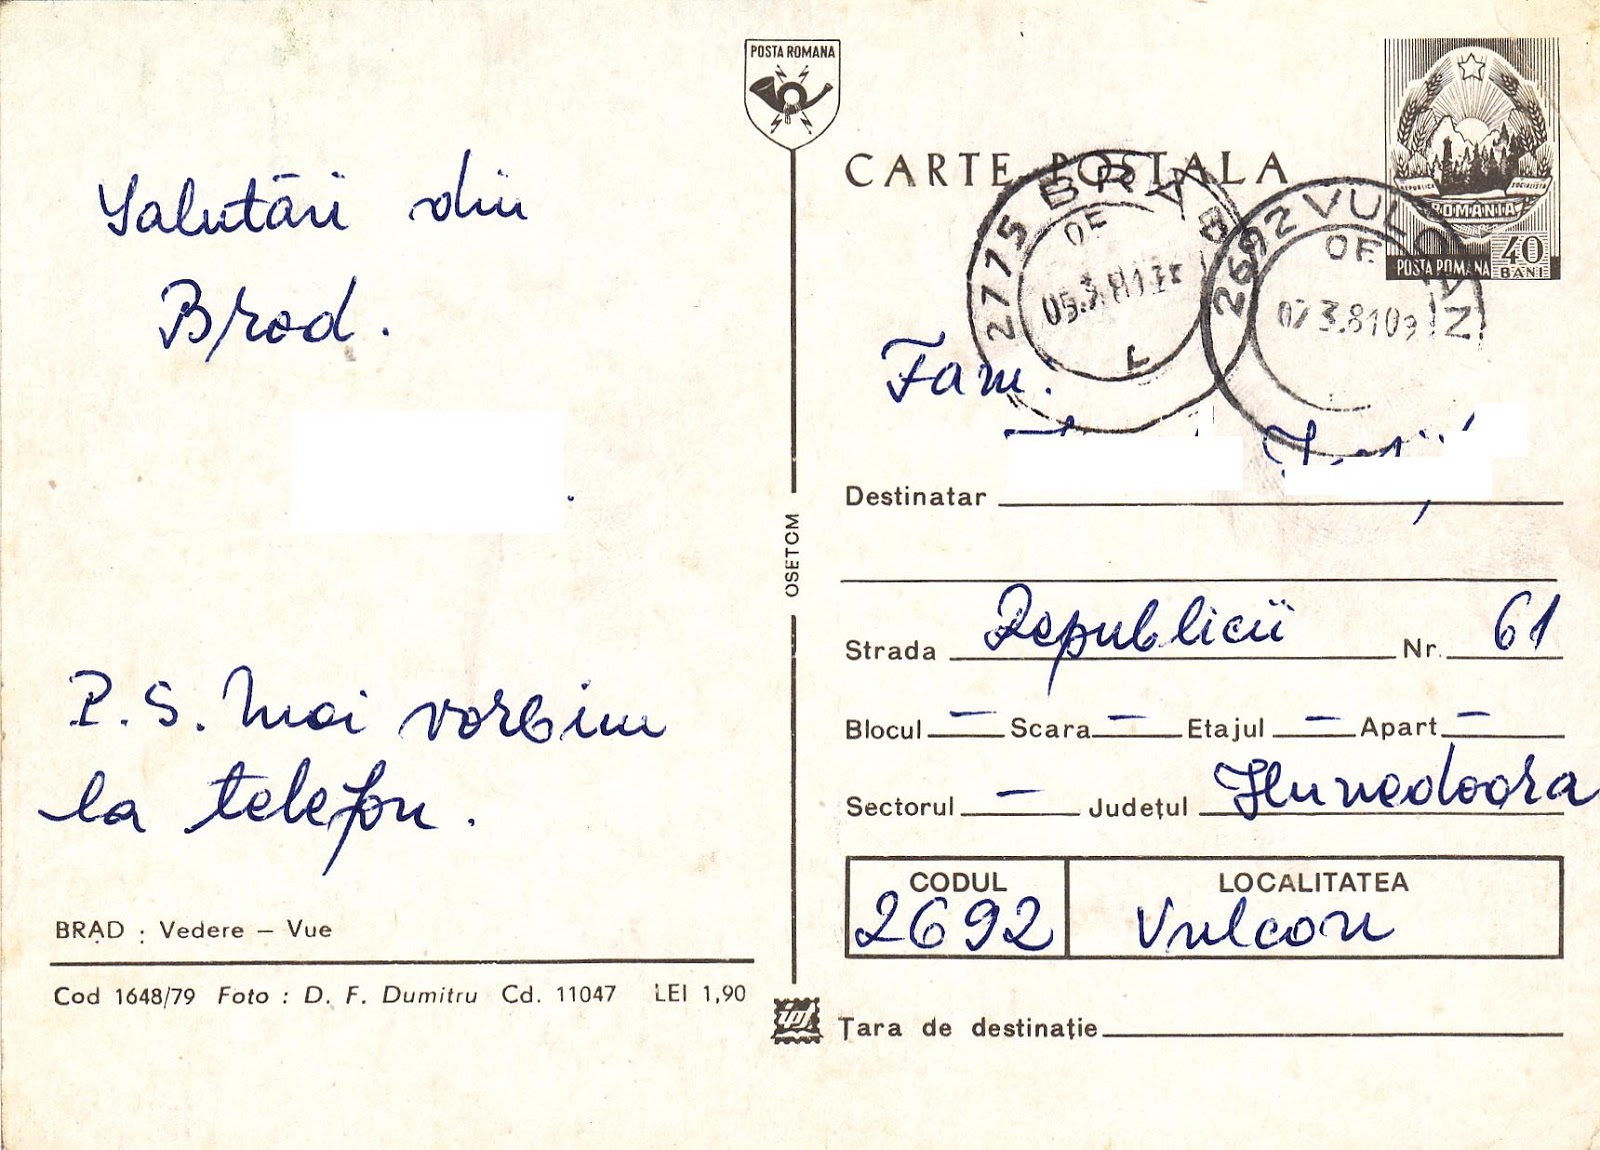 POSTA ROMANA
CARTE POSTALA
REPUBLICA SOCIALISTA
ROMÂNIA
POSTA ROMANA 40 BANI
2775 BRAD
OF
05.3.81
2692 VULCAN
OF
07.3.81 09
Salutări din
Brad.
P.S. Mai vorbim
la telefon.
BRAD : Vedere – Vue
Cod 1648/79 Foto : D. F. Dumitru Cd. 11047 LEI 1,90
OSETCM
Fam.
Destinatar
Strada Republicii Nr. 61
Blocul — Scara — Etajul — Apart. —
Sectorul — Județul Hunedoara
CODUL LOCALITATEA
2692 Vulcan
Țara de destinație